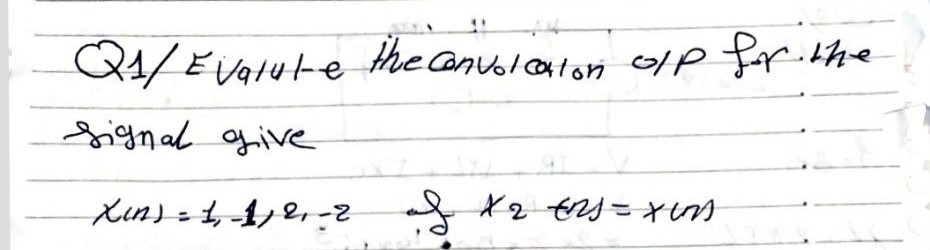 Q1/ Evalute the convolcation o/p for the
signal give
x(n) = 1, -1, 2, -2 if x2 (n) = x(n)